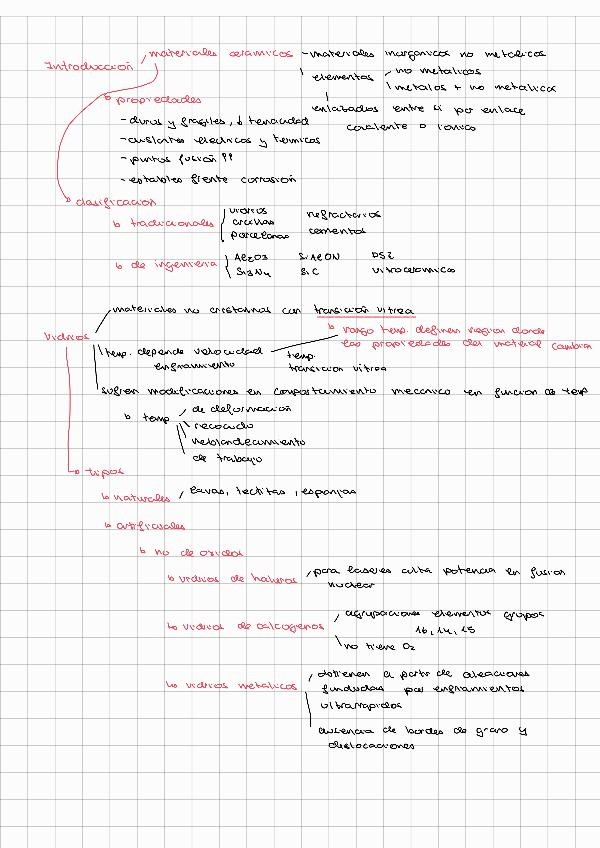 Introducción
materiales cerámicos - materiales inorgánicos no metálicos
elementos no metálicos
metálos + no metálica
enlabados entre si por enlace
covalente o iónico
propiedades
- duros y frágiles, ↓ tenacidad
- aislantes eléctricos y térmicos
- puntos fusión ↑↑
- estables frente corrosión
clasificación
tradicionales
vidrios refractarios
arcillas cementos
porcelanas
de ingeniería
Al2O3 SiAlON
Si3N4 SiC vitrocerámico
Vidrios
materiales no cristalinos con transición vítrea
rango temp. definen región donde
las propiedades del material cambian
temp. depende velocidad
enfriamiento
temp.
transición vítrea
sufren modificaciones en comportamiento mecánico en función de temp
temp de deformación
recocido
reblandecimiento
de trabajo
tipos
naturales lavas, tectitas, esponjas
artificiales
no de óxidos
vidrios de haluros para láseres alta potencia en fusión
nuclear
vidrios de calcógenos
agrupaciones elementos grupos
16, 14, 15
no tiene O2
vidrios metálicos
obtienen a partir de aleaciones
fundidas por enfriamientos
ultrarrápidos
ausencia de bordes de grano y
dislocaciones